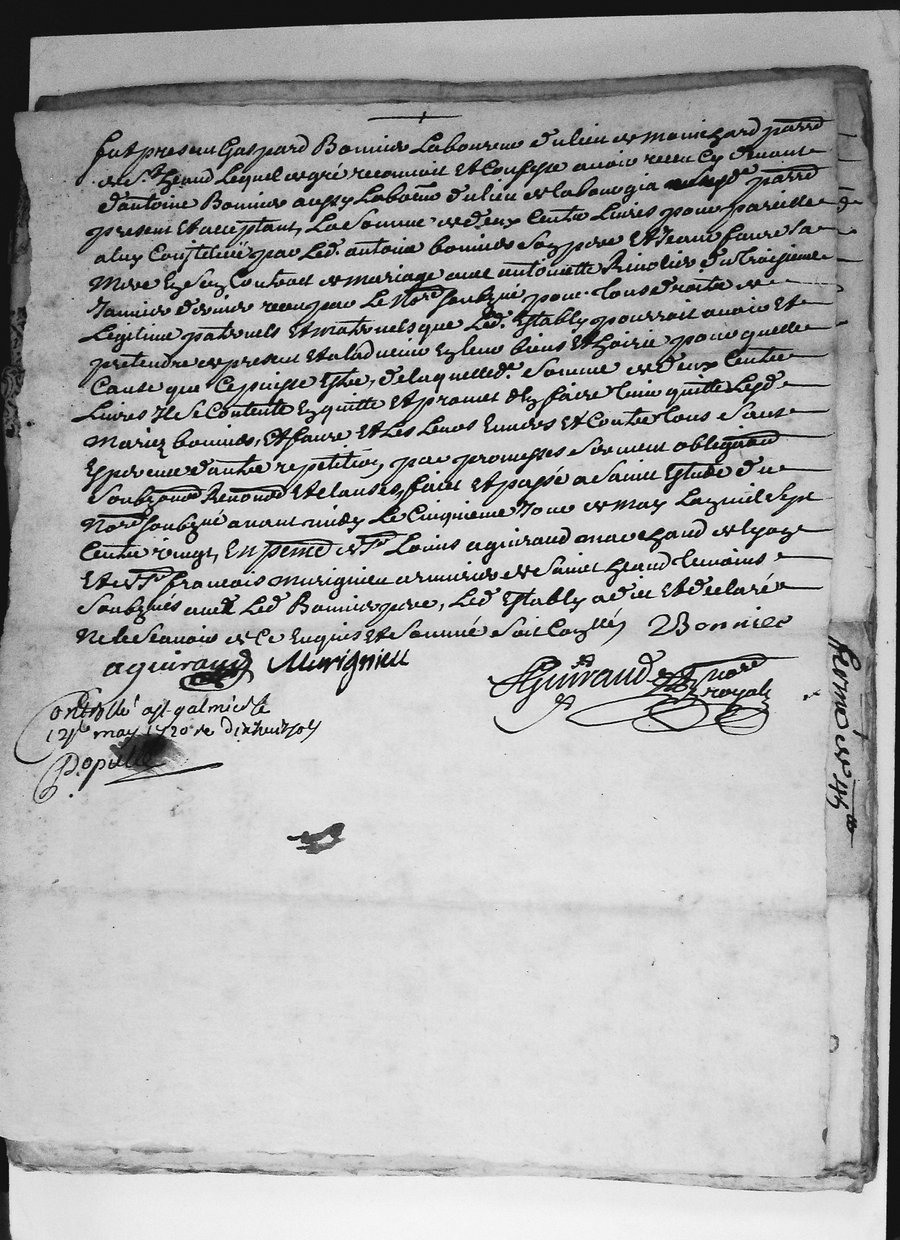 fut present Gaspard Bonnier Laboureur du lieu de manichard parre
de St heand Lequel de gré reconnoit et Confesse avoir receu Cy devant
d'antoine Bonnier aussy Labour du lieu de susde parre
present et acceptant, La somme de deux Centz Livres pour pareille
a luy Constituée par Led. antoine bonnier son pere et Jeane faure sa
mere En son Contract de mariage avec antoinette du troisieme
Janvier dernier receu par Le Nore soubzné pour tous droitz de
Legitime paternels et maternels que Led. Estably pourroit avoir et
pretendre de present et a ladvenir En leur biens et hoirie pour quelle
Cause que Ce puisse Estre, de laquelle de somme de deux Centz
Livres Il se Contente En quitte et promet d'En faire tenir quitte Lesd.
mariez bonnier, et faure et Les Leurs Envers et Contre tous sans
Esperence d'autre repetition, par promesses serment obligaons
soubzmons Renonons et clauses, faict et passé a Saint Estude du
Nore soubzné avant midy Le Cinquieme Jour de may La mil Sept
Centz vingt, En presence de Sr Louis aguiraud marchand de Lyon
et de Sr francois murignieu armurier de Saint heand temoins
Soubznés avec Led. Bonnier pere, Led. Estably a dit et declaré
Ne le scavoir de Ce Enquis et sommé Soit Conllé Bonnier
aguiraud Murignieu
Guiraud nore royal
Controllé a St galmier le
12e may 1720 re dix huit sols